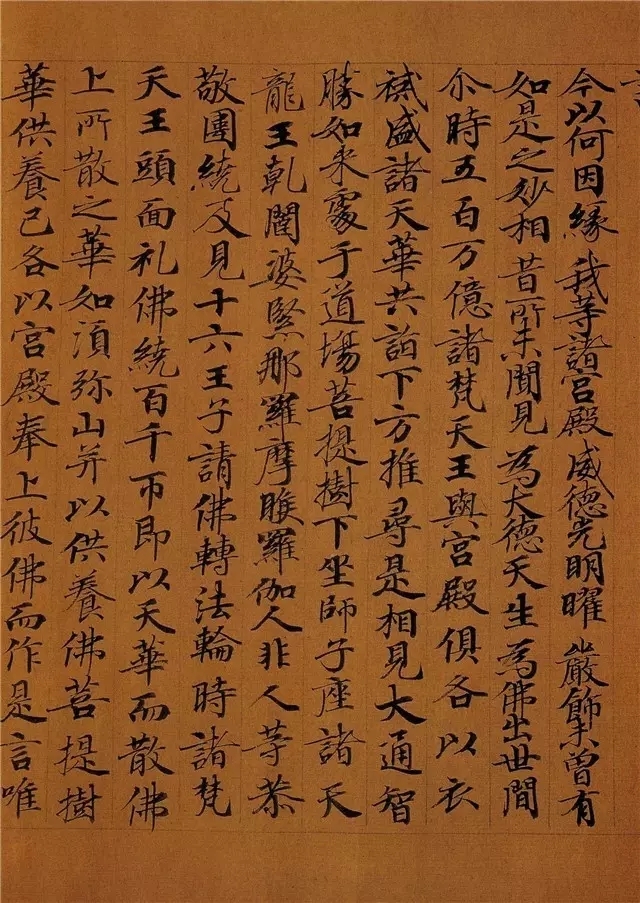 言
今以何因緣 我等諸宮殿 威德光明曜 嚴飾未曾有
如是之妙相 昔所未聞見 為大德天生 為佛出世間
尒時五百万億諸梵天王與宮殿俱各以衣
裓盛諸天華共詣下方推尋是相見大通智
勝如来處于道場菩提樹下坐師子座諸天
龍王乹闥婆緊那羅摩睺羅伽人非人等恭
敬圍繞及見十六王子請佛轉法輪時諸梵
天王頭面礼佛繞百千帀即以天華而散佛
上所散之華如湏弥山并以供養佛菩提樹
華供養已各以宮殿奉上彼佛而作是言唯